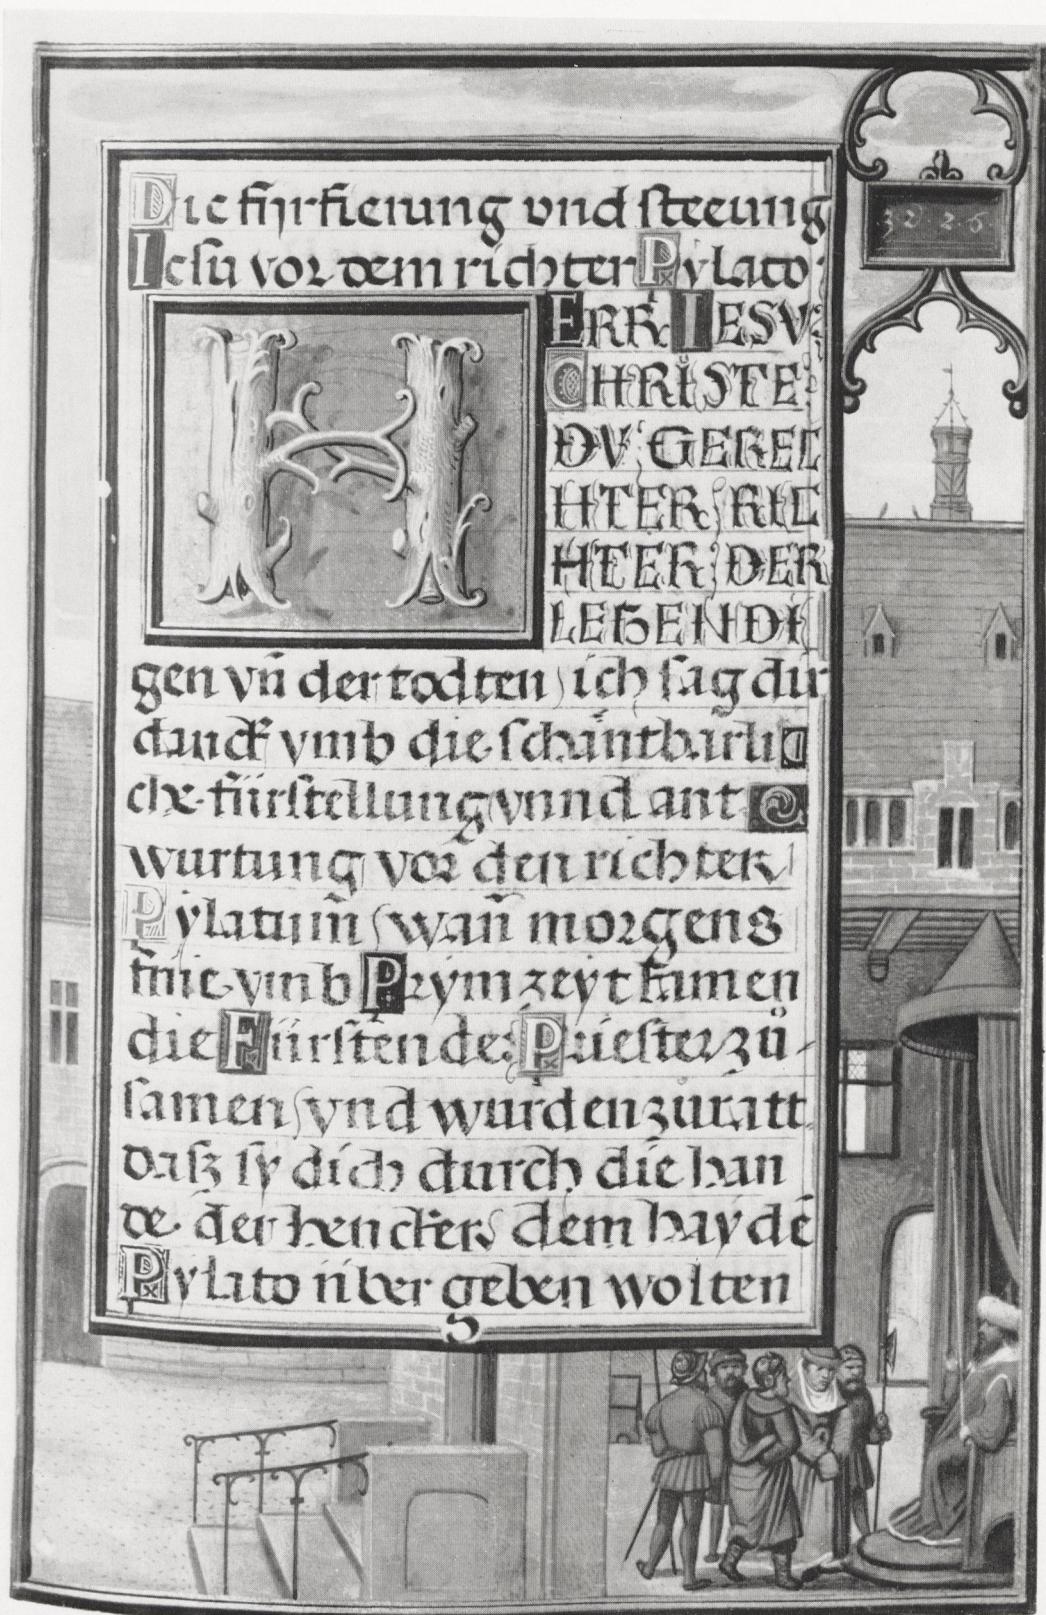 Die fürfierung vnd steeung
Iesu vor dem richter Pylato
HERR IESV
CHRISTE
DV GEREC
HTER RIC
HTER DER
LEBENDI
gen vn̄ der todten ich sag dir
danck vmb die schantbarli
che fürstellung vnnd ant
wurtung vor den richter
Pylatum̄ wan̄ morgens
frue vmb Prym zeyt kamen
die Fürsten der Priester zů
samen vnd wurden zu ratt
dasz sy dich durch die han
de der hencker dem haydē
Pylato über geben wolten